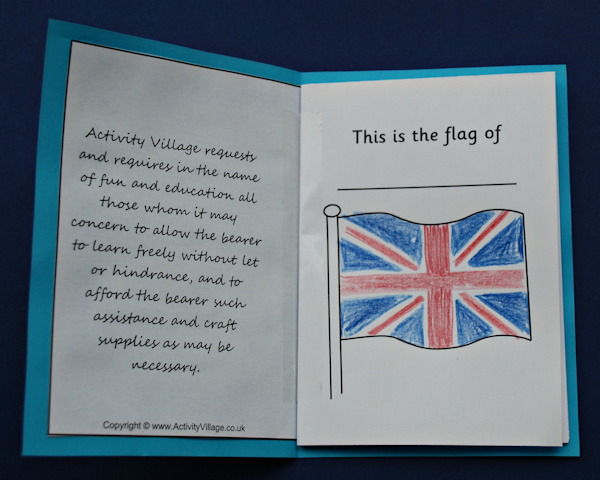 Activity Village requests
and requires in the name
of fun and education all
those whom it may
concern to allow the bearer
to learn freely without let
or hindrance, and to
afford the bearer such
assistance and craft
supplies as may be
necessary.
Copyright © www.ActivityVillage.co.uk
This is the flag of